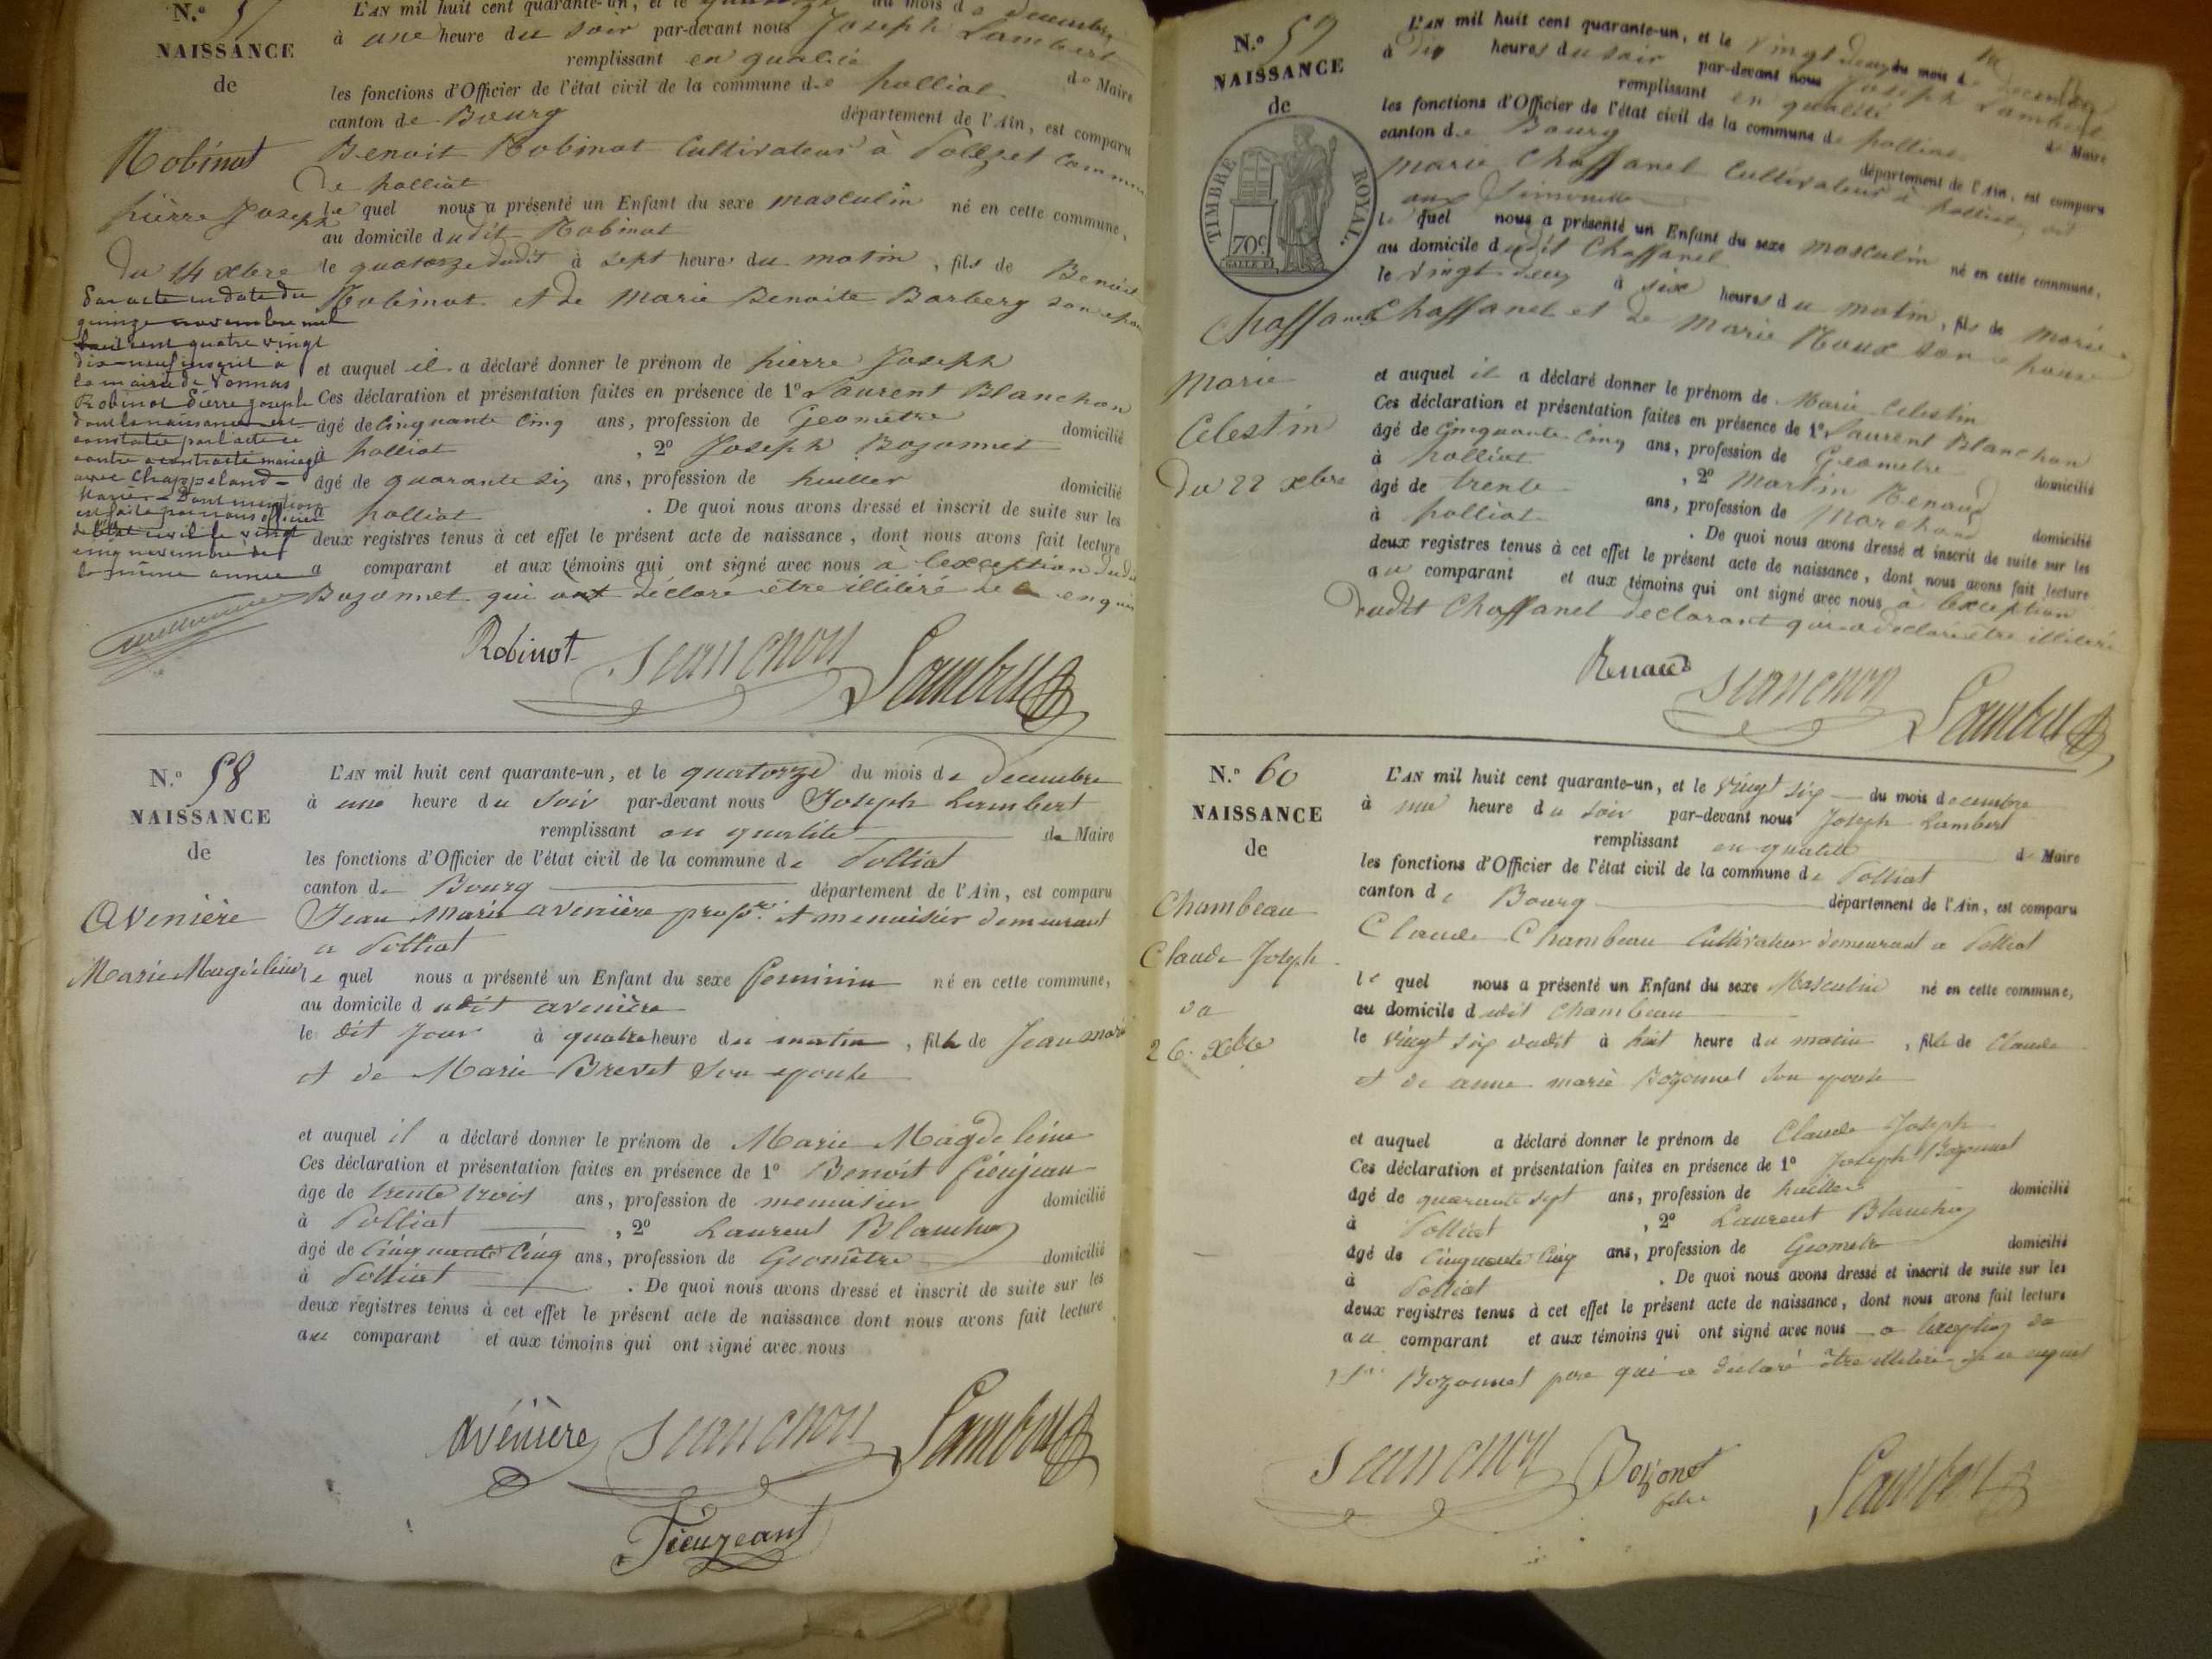 N.º 57
NAISSANCE
de
Robinot
pierre Joseph
du 14 xbre
Par acte en date du
quinze novembre mil
huit cent quatre vingt
dix-neuf inscrit à
la mairie de Vonnas
Robinot Pierre Joseph
dont la naissance est
constatée par l'acte ci
contre a contracté mariage
avec Chappeland
Marie - Dont mention
est faite par nous officier
de l'état civil le vingt
cinq novembre de
la même année
L'AN mil huit cent quarante-un, et le quatorze du mois de decembre
à une heure du soir par-devant nous Joseph Lambert
remplissant en qualité de Maire
les fonctions d'Officier de l'état civil de la commune de polliat
canton de Bourg département de l'Ain, est comparu
Benoit Robinot Cultivateur à
de polliat
le quel nous a présenté un Enfant du sexe masculin né en cette commune,
au domicile dudit Robinot
le quatorze dudit à sept heures du matin, fils de Benoit
Robinot et de Marie Benoite Barbery son
et auquel il a déclaré donner le prénom de pierre Joseph
Ces déclaration et présentation faites en présence de 1º Laurent Blanchon
âgé de Cinquante Cinq ans, profession de Geometre domicilié
à polliat, 2º Joseph Bozonnet
âgé de quarante six ans, profession de huiller domicilié
à polliat. De quoi nous avons dressé et inscrit de suite sur les
deux registres tenus à cet effet le présent acte de naissance, dont nous avons fait lecture
a comparant et aux témoins qui ont signé avec nous à l'exception dudit
Bozonnet qui ont déclaré etre illitéré de ce enquis
Robinot Blanchon Lambert
N.º 58
NAISSANCE
de
Avenière
Marie Magdeleine
L'AN mil huit cent quarante-un, et le quatorze du mois de decembre
à une heure du soir par-devant nous Joseph Lambert
remplissant en qualité de Maire
les fonctions d'Officier de l'état civil de la commune de Polliat
canton de Bourg département de l'Ain, est comparu
Jean Marie avenière propre et menuisier demeurant
a Polliat
le quel nous a présenté un Enfant du sexe feminin né en cette commune,
au domicile dudit avenière
le dit jour à quatre heure du matin, fille de Jean Marie
et de Marie Brevet son epouse
et auquel il a déclaré donner le prénom de Marie Magdeleine
Ces déclaration et présentation faites en présence de 1º Benoit fieujean
âge de trente trois ans, profession de menuisier domicilié
à Polliat, 2º Laurent Blanchon
âgé de Cinquante Cinq ans, profession de Geomètre domicilié
à Polliat. De quoi nous avons dressé et inscrit de suite sur les
deux registres tenus à cet effet le présent acte de naissance dont nous avons fait lecture
au comparant et aux témoins qui ont signé avec nous
Avénière Blanchon Lambert
Fieuzeant
N.º 59
NAISSANCE
de
TIMBRE ROYAL.
70c
Chaffanel
Marie
Celestin
du 22 xbre
L'AN mil huit cent quarante-un, et le vingt deux du mois de decembre
à dix heures du soir par-devant nous Joseph Lambert
remplissant en qualité de Maire
les fonctions d'Officier de l'état civil de la commune de polliat
canton de Bourg département de l'Ain, est comparu
Marie Chaffanel Cultivateur à polliat
aux
le quel nous a présenté un Enfant du sexe masculin né en cette commune,
au domicile dudit Chaffanel
le vingt deux à six heures du matin, fils de Marie
Chaffanel et de Marie Roux son epouse
et auquel il a déclaré donner le prénom de Marie Celestin
Ces déclaration et présentation faites en présence de 1º Laurent Blanchon
âgé de Cinquante Cinq ans, profession de Geometre domicilié
à polliat, 2º Martin Renaud
âgé de trente ans, profession de Marchand domicilié
à polliat. De quoi nous avons dressé et inscrit de suite sur les
deux registres tenus à cet effet le présent acte de naissance, dont nous avons fait lecture
au comparant et aux témoins qui ont signé avec nous à l'exception
dudit Chaffanel declarant qui a déclaré être illitéré
Renaud Blanchon Lambert
N.º 60
NAISSANCE
de
Chambeau
Claude Joseph
du
26. Xbre
L'AN mil huit cent quarante-un, et le vingt six du mois decembre
à une heure du soir par-devant nous Joseph Lambert
remplissant en qualité de Maire
les fonctions d'Officier de l'état civil de la commune de Polliat
canton de Bourg département de l'Ain, est comparu
Claude Chambeau Cultivateur demeurant a Polliat
le quel nous a présenté un Enfant du sexe Masculin né en cette commune,
au domicile dudit Chambeau
le vingt six dudit à huit heure du matin, fils de Claude
et de anne marie Bozonnet son epouse
et auquel a déclaré donner le prénom de Claude Joseph
Ces déclaration et présentation faites en présence de 1º Joseph Bozonnet
âgé de quarante sept ans, profession de huiller domicilié
à Polliat, 2º Laurent Blanchon
âgé de Cinquante Cinq ans, profession de Geometre domicilié
à Polliat. De quoi nous avons dressé et inscrit de suite sur les
deux registres tenus à cet effet le présent acte de naissance, dont nous avons fait lecture
au comparant et aux témoins qui ont signé avec nous a l'exception du
Bozonnet pere qui a declaré être illitéré de ce enquis
Blanchon Bozonet Lambert